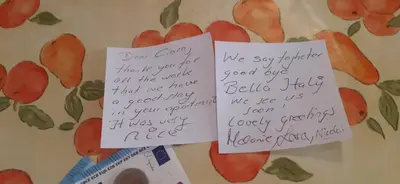 Dear Cony,
thank you for
all the work
that we have
a good stay
in your apartment
It was very
nice
We say togheter
good bye
Bella Italy
We see us
soon!
Lovely greetings
Melanie, Lora, Nicole